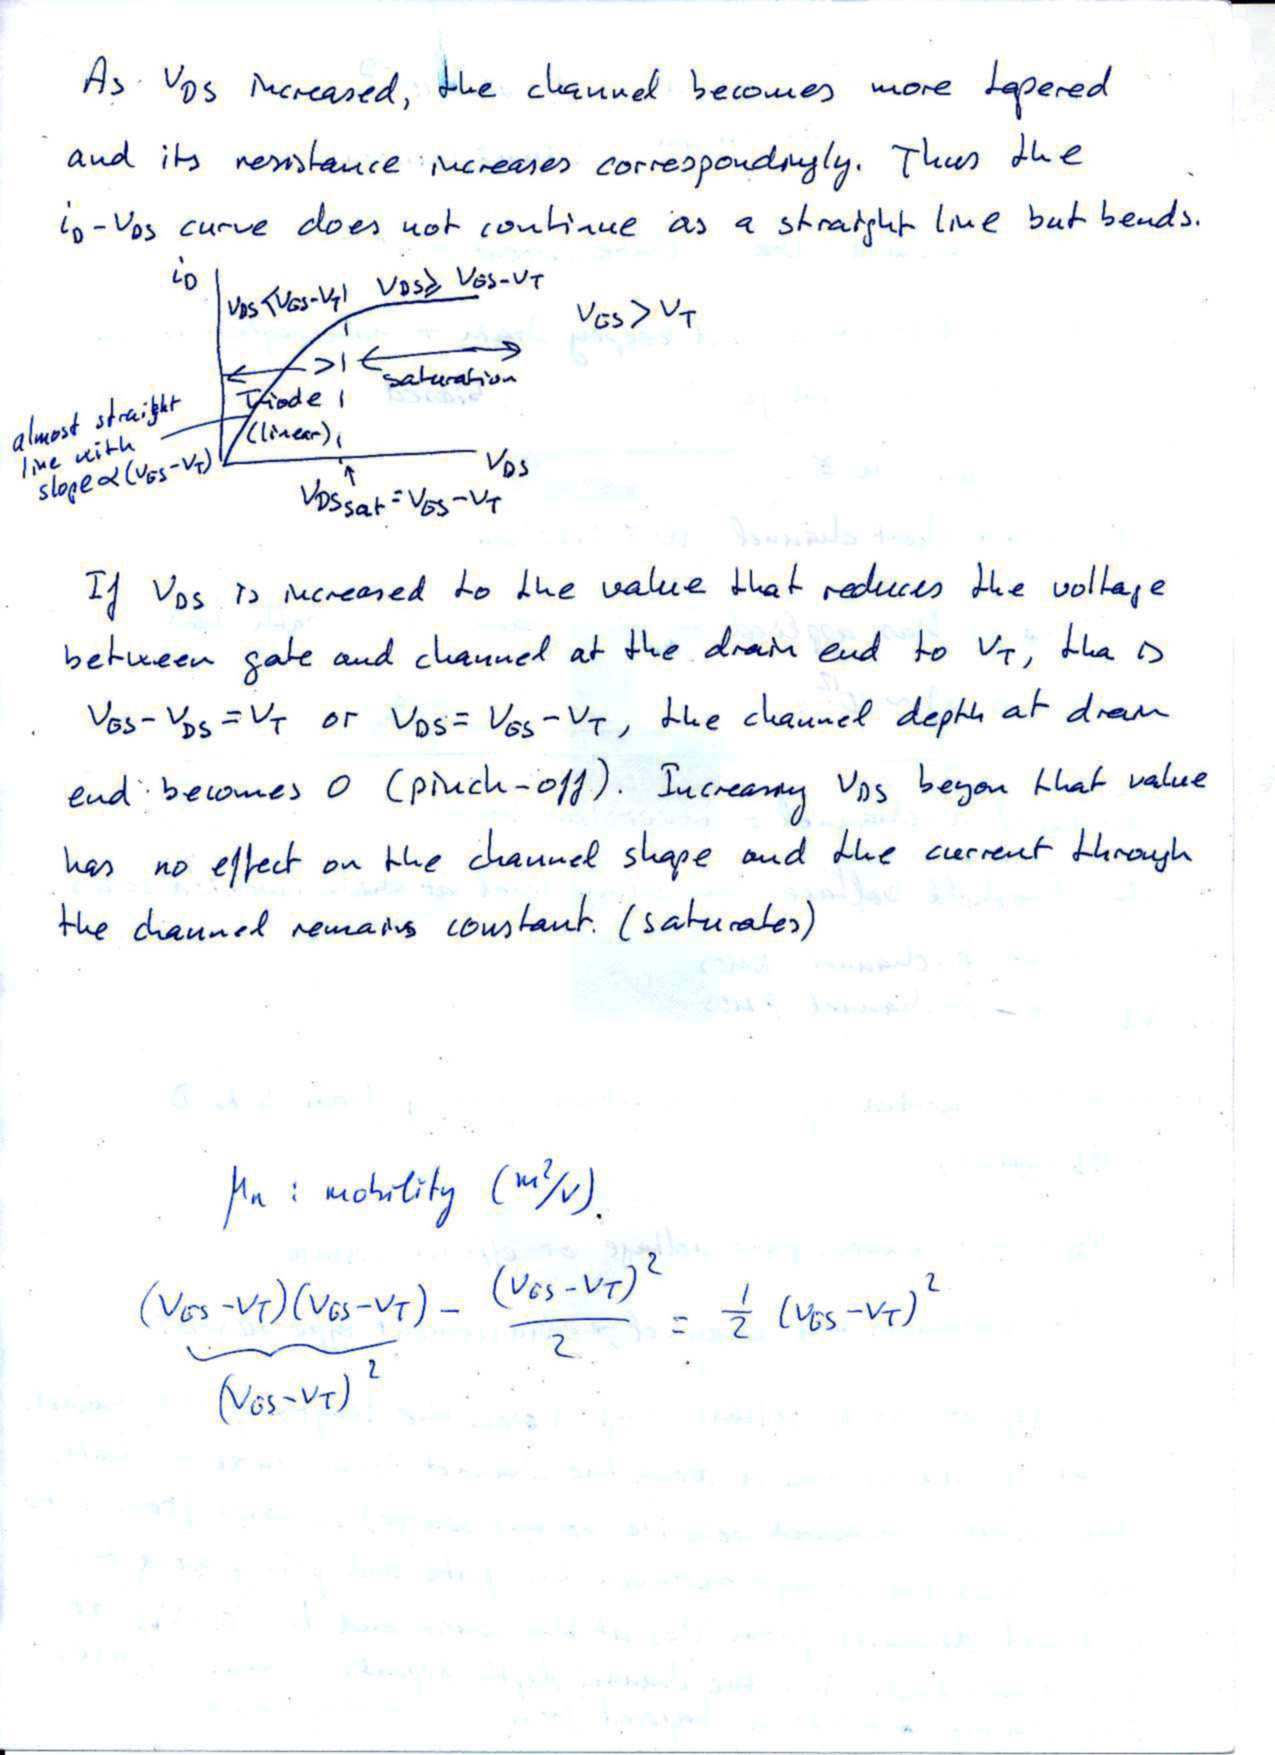 As V_DS increased, the channel becomes more tapered
and its resistance increases correspondingly. Thus the
i_D-V_DS curve does not continue as a straight line but bends.
i_D
V_DS<(V_GS-V_T)
V_DS≥ V_GS-V_T
V_GS>V_T
saturation
Triode
(linear)
almost straight
line with
slope∝(V_GS-V_T)
V_DS
V_DSsat=V_GS-V_T
If V_DS is increased to the value that reduces the voltage
between gate and channel at the drain end to V_T, tha is
V_GS-V_DS=V_T or V_DS=V_GS-V_T, the channel depth at drain
end becomes 0 (pinch-off). Increasing V_DS beyon that value
has no effect on the channel shape and the current through
the channel remains constant. (saturates)
μ_n : mobility (m²/V).
(V_GS-V_T)(V_GS-V_T) - (V_GS-V_T)²/2 = 1/2 (V_GS-V_T)²
(V_GS-V_T)²